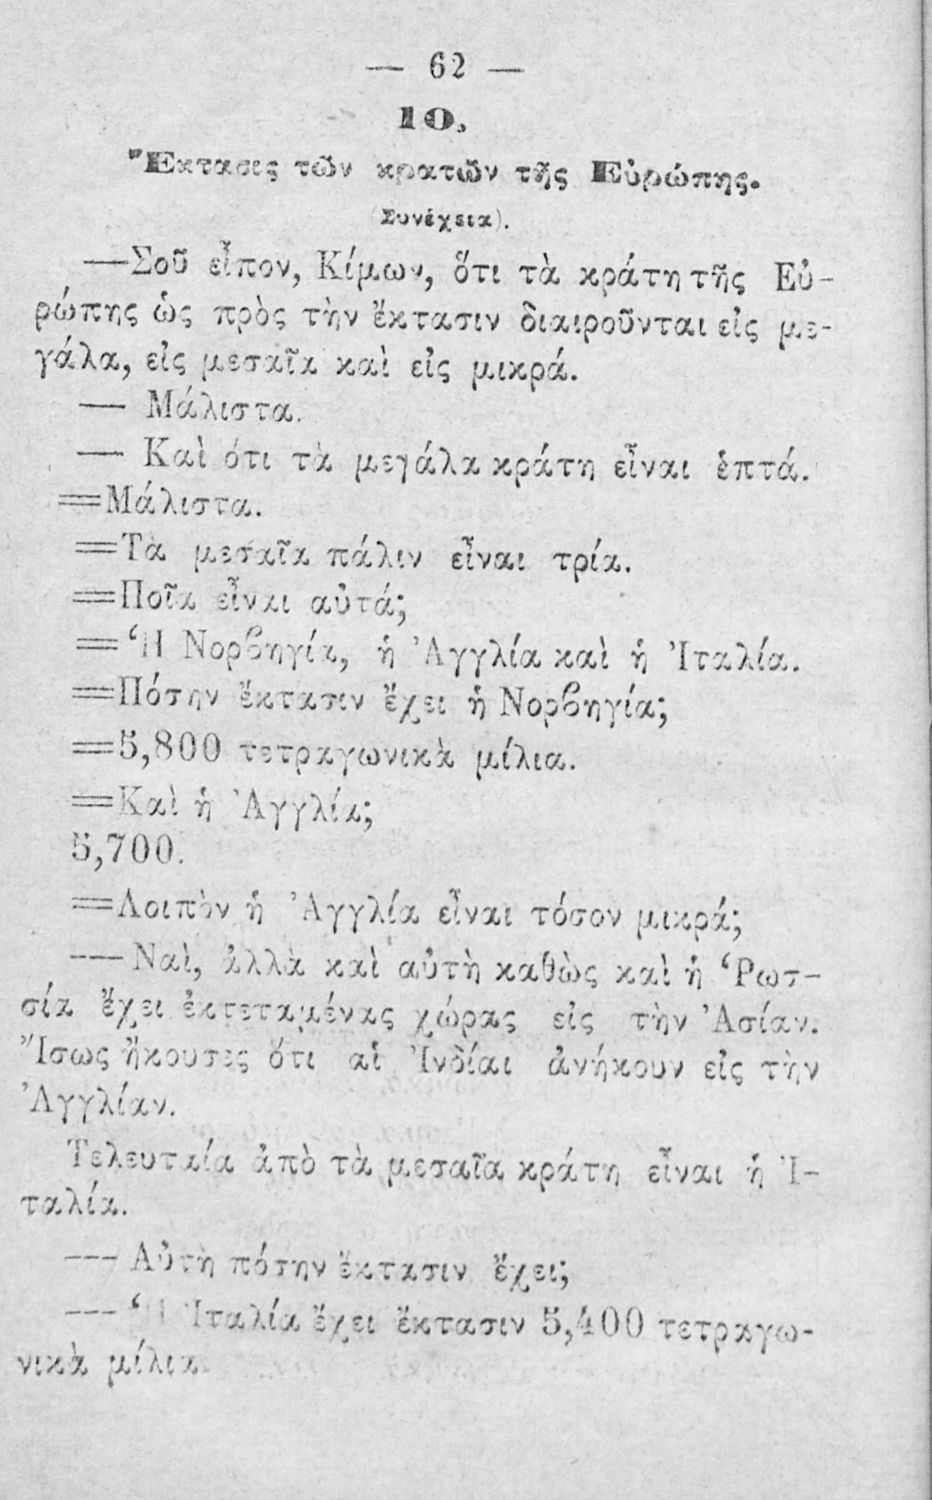 — 62 —
10.
Ἔκτασις τῶν κρατῶν τῆς Εὐρώπης.
(Συνέχεια).
—Σοῦ εἶπον, Κίμων, ὅτι τὰ κράτη τῆς Εὐ-
ρώπης ὡς πρὸς τὴν ἔκτασιν διαιροῦνται εἰς με-
γάλα, εἰς μεσαῖα καὶ εἰς μικρά.
— Μάλιστα.
— Καὶ ὅτι τὰ μεγάλα κράτη εἶναι ἑπτά.
=Μάλιστα.
=Τὰ μεσαῖα πάλιν εἶναι τρία.
=Ποῖα εἶναι αὐτά;
=Ἡ Νορβηγία, ἡ Ἀγγλία καὶ ἡ Ἰταλία.
=Πόσην ἔκτασιν ἔχει ἡ Νορβηγία;
=5,800 τετραγωνικὰ μίλια.
=Καὶ ἡ Ἀγγλία;
5,700.
=Λοιπὸν ἡ Ἀγγλία εἶναι τόσον μικρά;
--- Ναὶ, ἀλλὰ καὶ αὐτὴ καθὼς καὶ ἡ Ῥωσ-
σία ἔχει ἐκτεταμένας χώρας εἰς τὴν Ἀσίαν.
Ἴσως ἤκουσες ὅτι αἱ Ἰνδίαι ἀνήκουν εἰς τὴν
Ἀγγλίαν.
Τελευταία ἀπὸ τὰ μεσαῖα κράτη εἶναι ἡ Ἰ-
ταλία.
--- Αὐτὴ πόσην ἔκτασιν ἔχει;
--- Ἡ Ἰταλία ἔχει ἔκτασιν 5,400 τετραγω-
νικὰ μίλια.